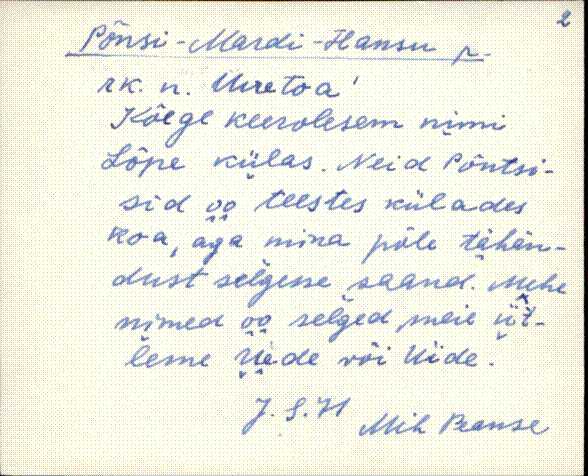 2
Põnsi-Mardi-Hansu p.
rk. n. Uuetoa'
Kõege keerolesem nimi
Lõpe külas. Neid Põntsi-
sid oo teestes külades
koa, aga mina põle tähen-
dust selgese saand. Mehe
nimed oo selged, meie üt-
leme Uede või Uide.
J. S. H Mih Pranse